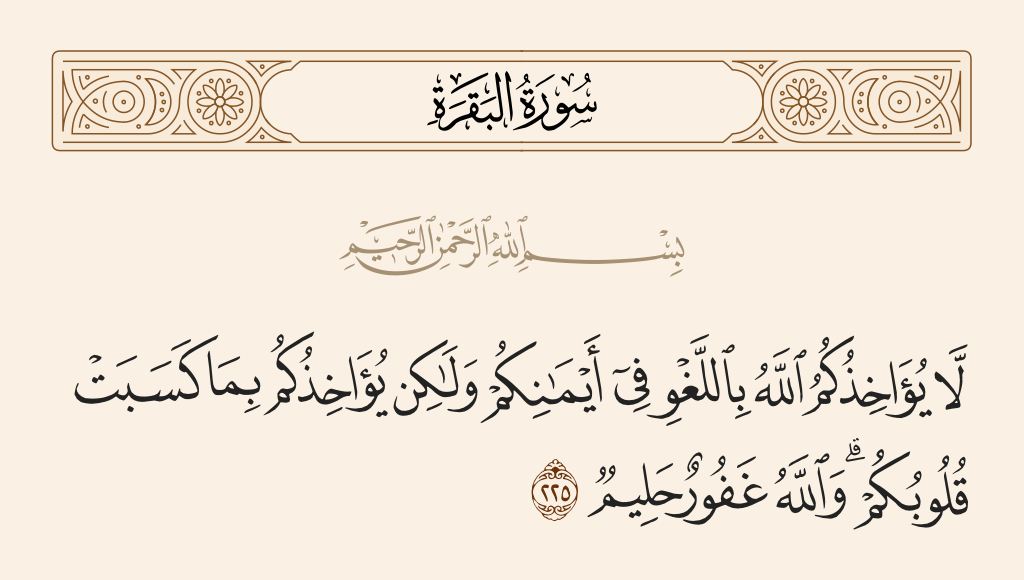 سُورَةُ البَقَرَةِ
بِسْمِ ٱللَّهِ ٱلرَّحْمَٰنِ ٱلرَّحِيمِ
لَّا يُؤَاخِذُكُمُ ٱللَّهُ بِٱللَّغْوِ فِىٓ أَيْمَـٰنِكُمْ وَلَـٰكِن يُؤَاخِذُكُم بِمَا كَسَبَتْ
قُلُوبُكُمْ ۗ وَٱللَّهُ غَفُورٌ حَلِيمٌ ٢٢٥